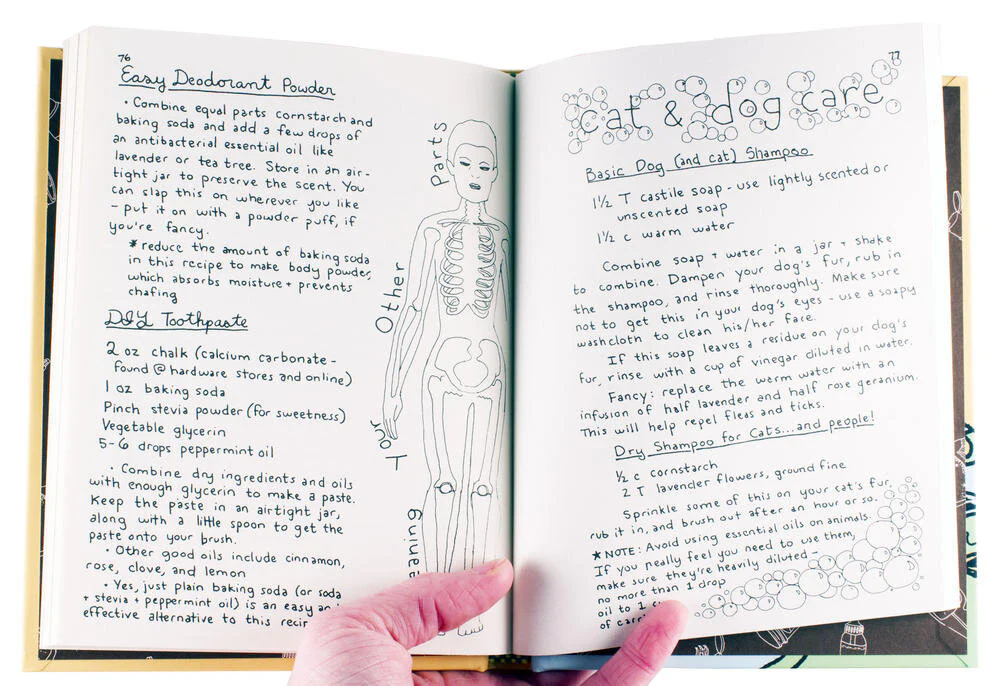 76
Easy Deodorant Powder
• Combine equal parts cornstarch and
baking soda and add a few drops of
an antibacterial essential oil like
lavender or tea tree. Store in an air-
tight jar to preserve the scent. You
can slap this on wherever you like
- put it on with a powder puff, if
you're fancy.
* reduce the amount of baking soda
in this recipe to make body powder,
which absorbs moisture + prevents
chafing
DIY Toothpaste
2 oz chalk (calcium carbonate -
found @ hardware stores and online)
1 oz baking soda
Pinch stevia powder (for sweetness)
Vegetable glycerin
5-6 drops peppermint oil
• Combine dry ingredients and oils
with enough glycerin to make a paste.
Keep the paste in an airtight jar,
along with a little spoon to get the
paste onto your brush.
• Other good oils include cinnamon,
rose, clove, and lemon
• Yes, just plain baking soda (or soda
+ stevia + peppermint oil) is an easy
effective alternative to this
Your
Other
Parts
77
cat & dog care
Basic Dog (and cat) Shampoo
1½ T castile soap - use lightly scented or
unscented soap
1½ c warm water
Combine soap + water in a jar + shake
to combine. Dampen your dog's fur, rub in
the shampoo, and rinse thoroughly. Make sure
not to get this in your dog's eyes - use a soapy
washcloth to clean his/her face.
If this soap leaves a residue on your dog's
fur, rinse with a cup of vinegar diluted in water.
Fancy: replace the warm water with an
infusion of half lavender and half rose geranium.
This will help repel fleas and ticks.
Dry Shampoo for Cats...and people!
½ c cornstarch
2 T lavender flowers, ground fine
Sprinkle some of this on your cat's fur,
rub it in, and brush out after an hour or so.
★ NOTE: Avoid using essential oils on animals.
If you really feel you need to use them,
make sure they're heavily diluted -
no more than 1 drop
oil to 1
of